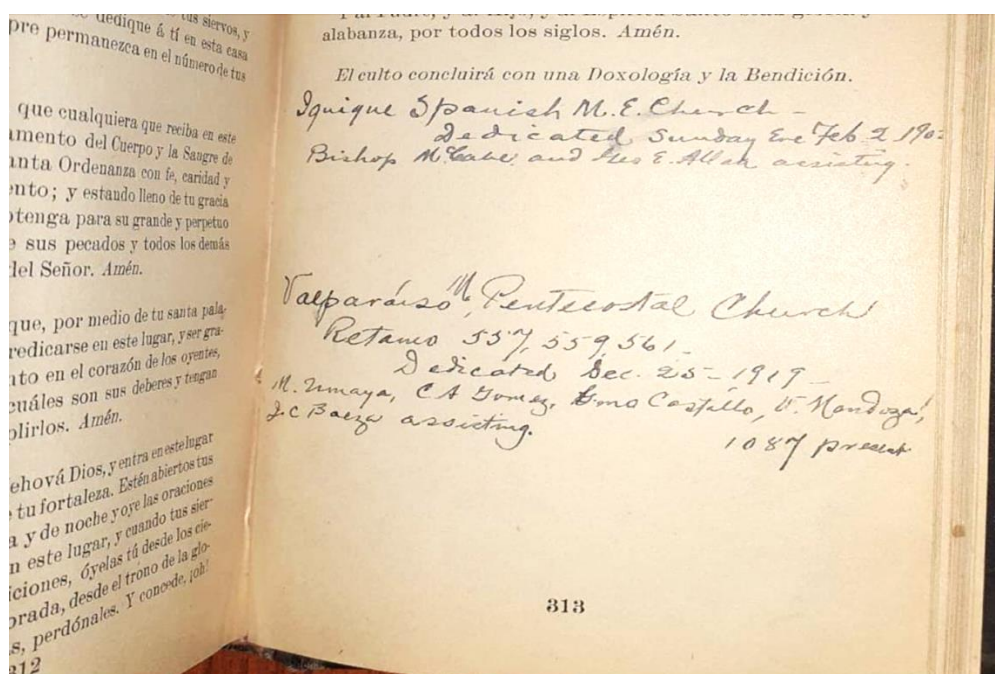 dedique á tí en esta casa
pre permanezca en el número de tus
que cualquiera que reciba en este
amento del Cuerpo y la Sangre de
anta Ordenanza con fe, caridad y
ento; y estando lleno de tu gracia
otenga para su grande y perpetuo
e sus pecados y todos los demás
del Señor. Amén.
que, por medio de tu santa pala-
redicarse en este lugar, y ser gra-
nto en el corazón de los oyentes,
cuáles son sus deberes y tengan
plirlos. Amén.
ehová Dios, y entra en este lugar
e tu fortaleza. Estén abiertos tus
a y de noche y oye las oraciones
n este lugar, y cuando tus sier-
iciones, óyelas tú desde los cie-
orada, desde el trono de la glo-
s, perdónales. Y concede, ¡oh!
312
alabanza, por todos los siglos. Amén.
El culto concluirá con una Doxología y la Bendición.
Iquique Spanish M. E. Church -
Dedicated Sunday Eve Feb 2 190
Bishop McCabe and Geo E. Allen assisting.
Valparaíso M. Pentecostal Church
Retamo 557, 559, 561
Dedicated Dec. 25 - 1919 -
M. Umaya, C A Gomez, Gmo Castillo, V. Mendoza,
J. C Baeza assisting.
1087 present
313